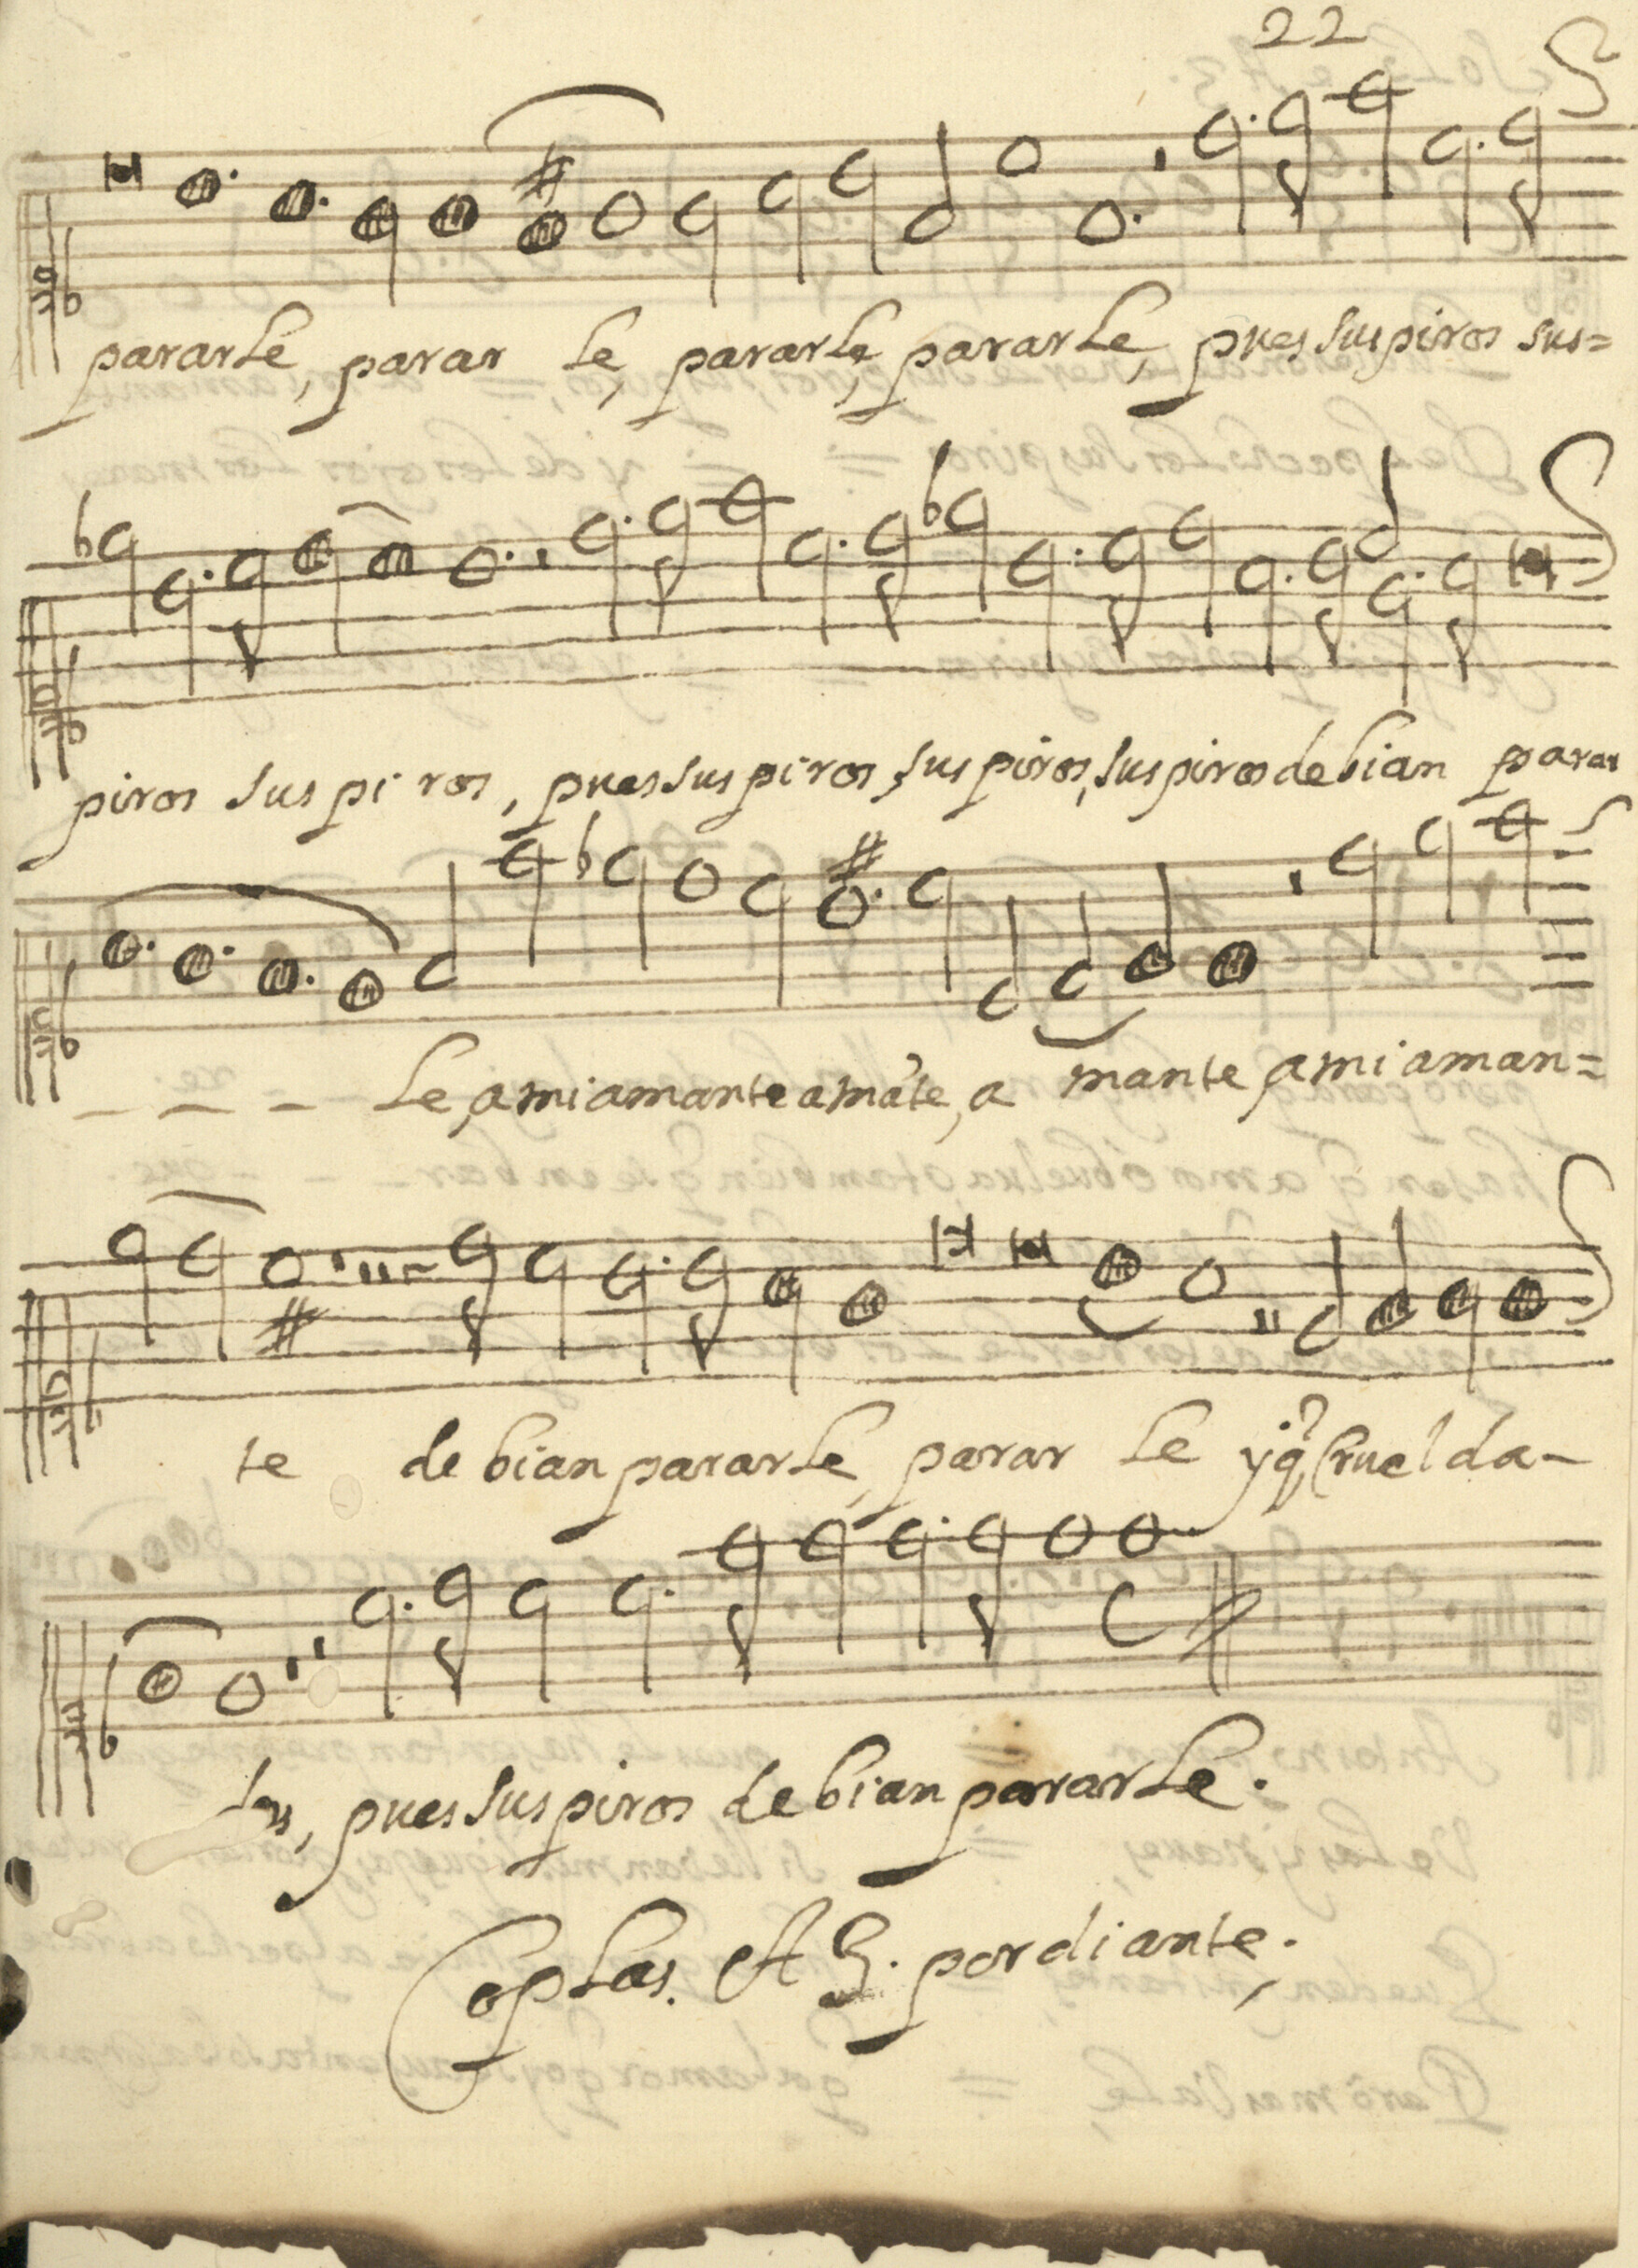 22
pararle, parar le, pararle, pararle, pues suspiros sus=
piros suspi ros, pues suspiros, suspiros, suspiros debian parar
_ _ _ le, a mi amante amãte, a mante, a mi aman=
te debian pararle, parar le y q̃ cruelda-
des, pues suspiros debian pararle.
Coplas. A 3. por diante.